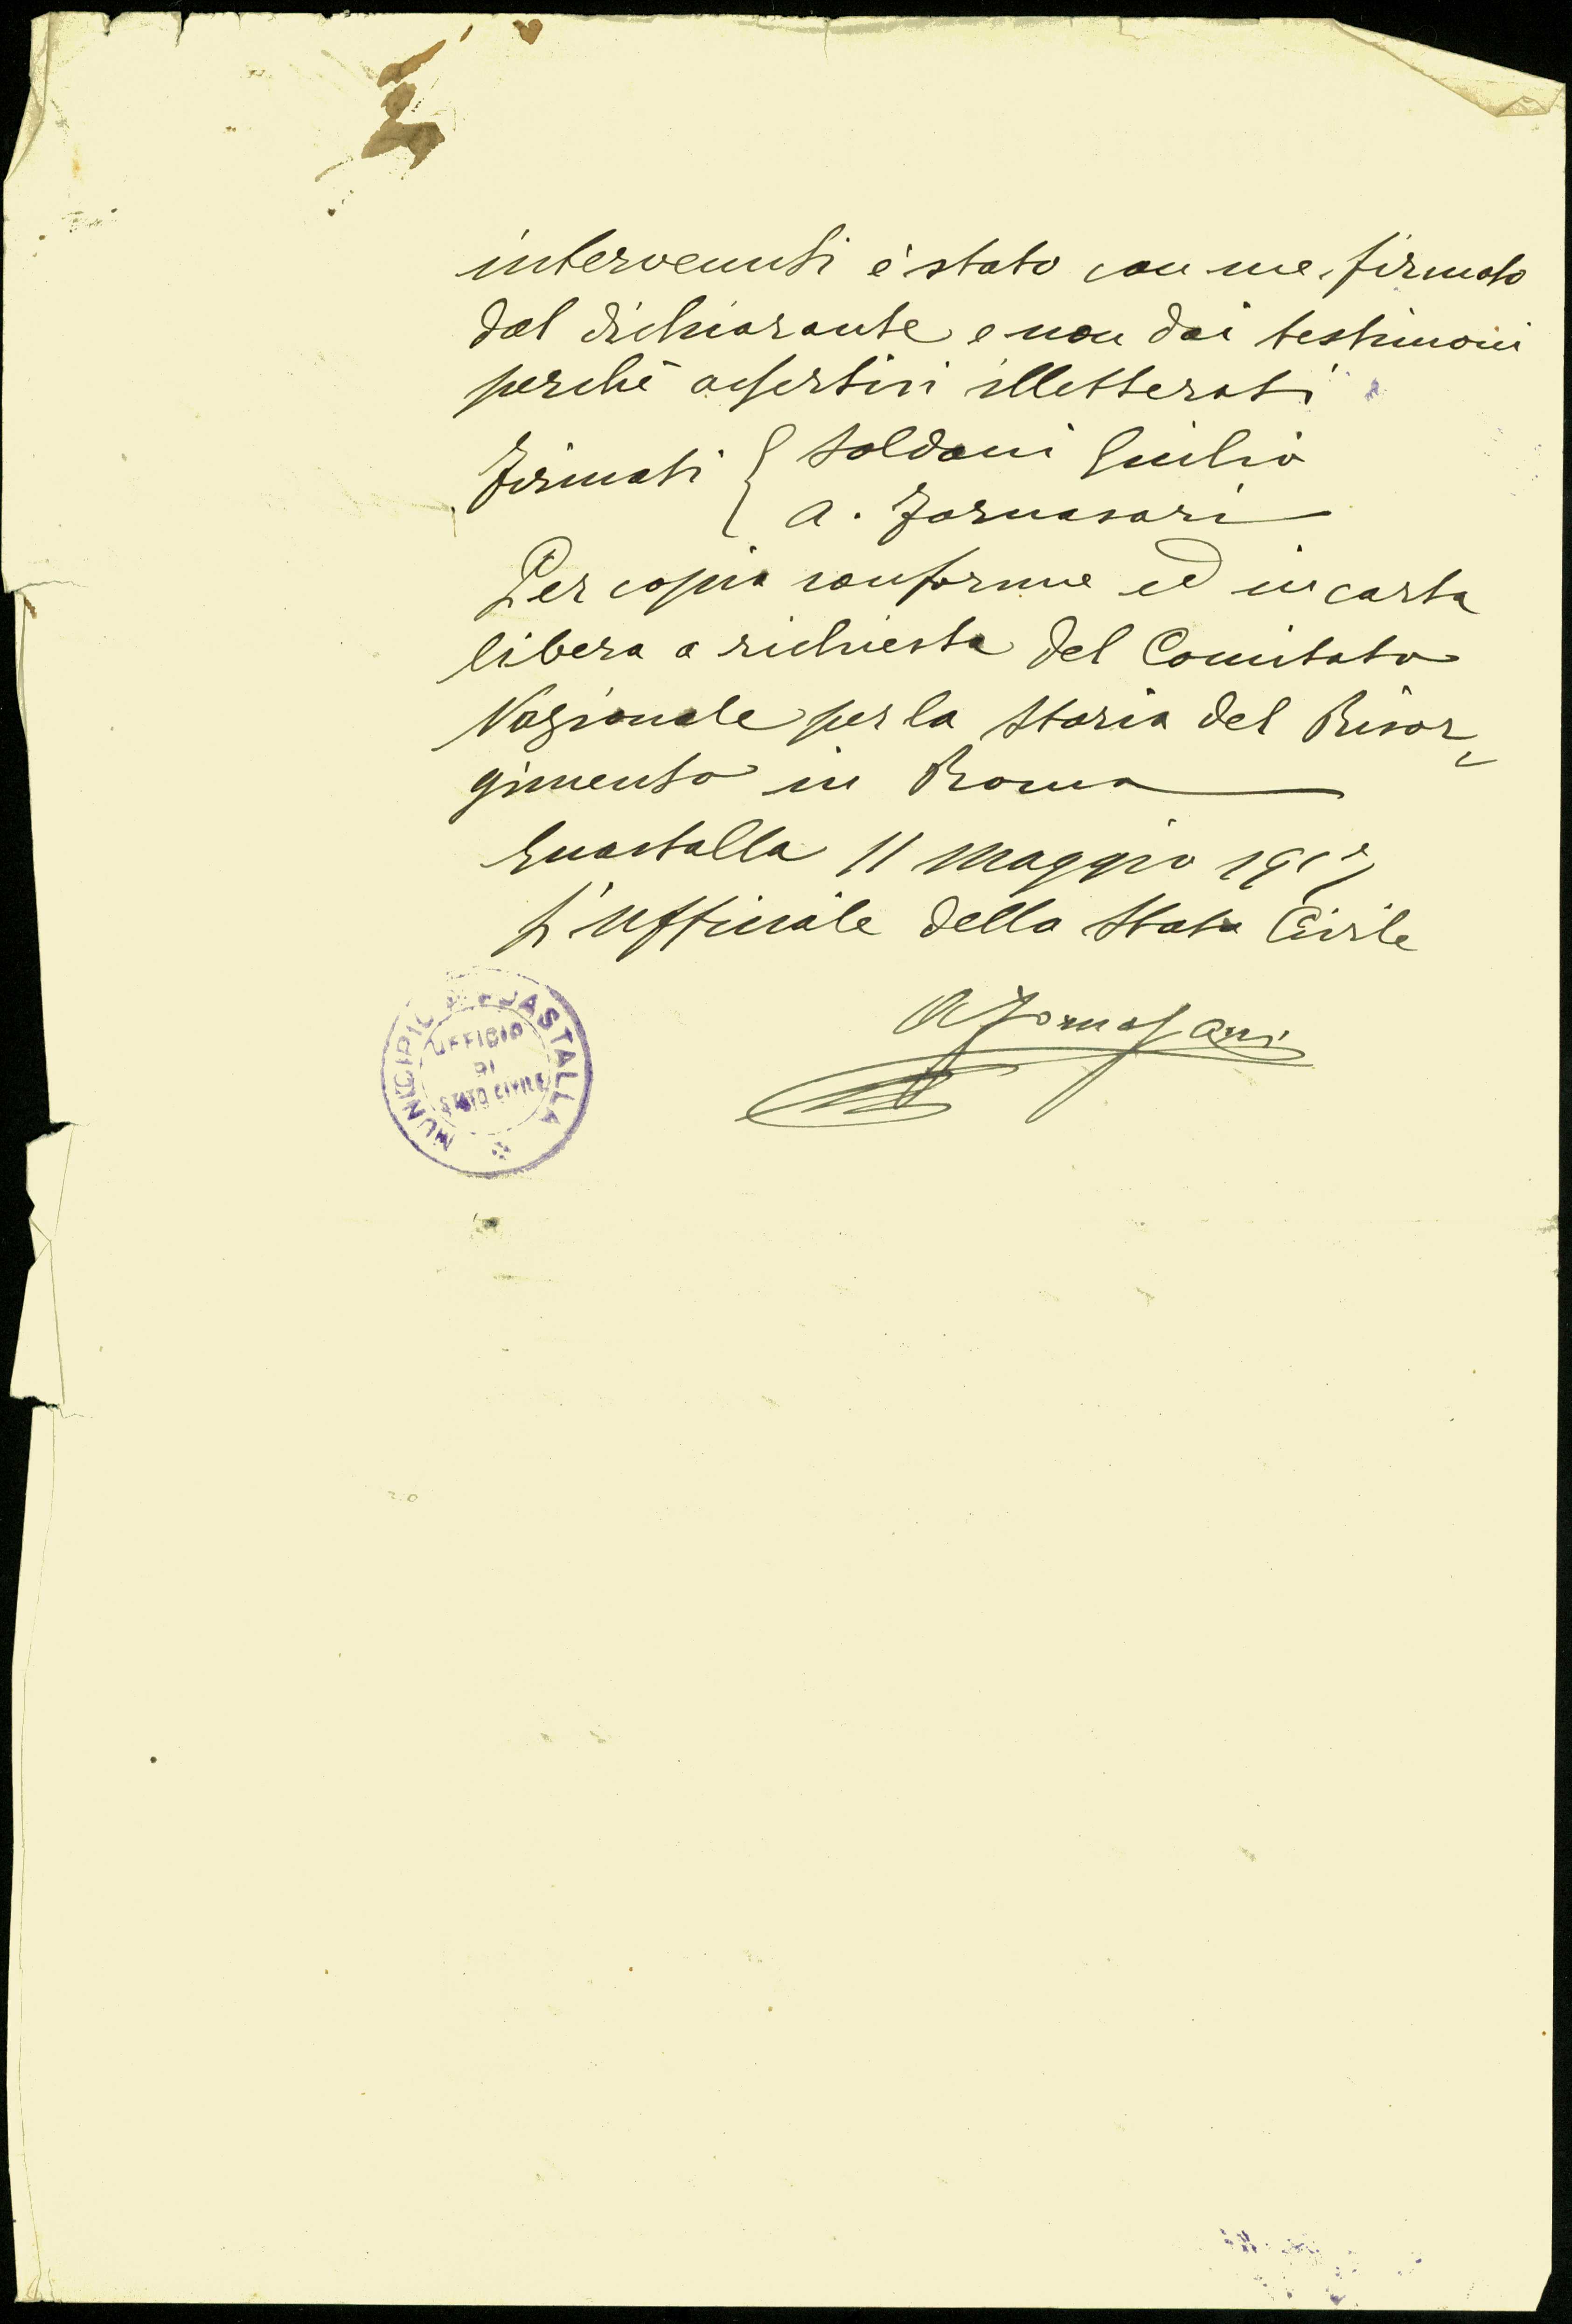 intervenuti è stato con me firmato
dal dichiarante e non dai testimoni
perchè assertisi illetterati
Firmati { Soldani Giulio
A. Fornasari
Per copia conforme ed in carta
libera a richiesta del Comitato
Nazionale per la Storia del Risor-
gimento in Roma
Guastalla 11 Maggio 1917
L'Ufficiale dello Stato Civile
A Fornasari
MUNICIPIO DI GUASTALLA
UFFICIO
DI
STATO CIVILE